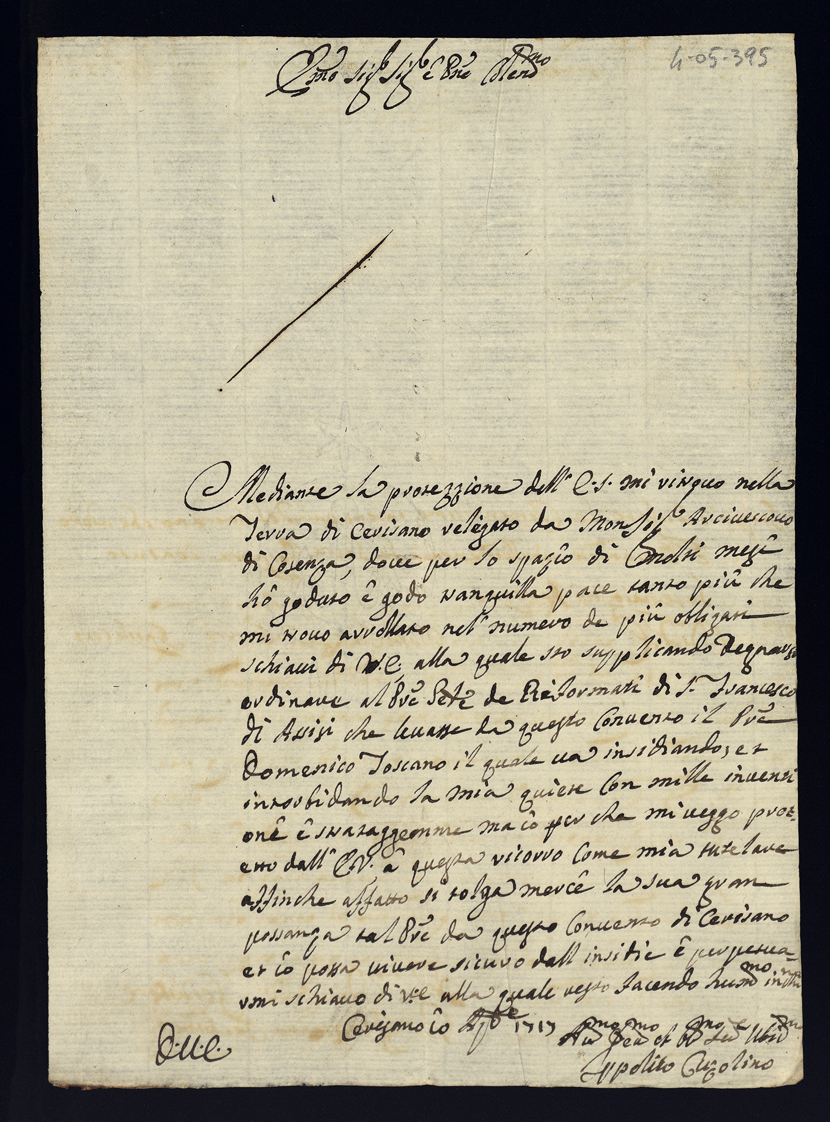 4-05-395
Emo Sigr Sigr e Pne Colendmo
Mediante la protezzione dell' E.S. mi ritrouo nella
Terra di Cerisano relegato da Monsigr Arciuescouo
di Cosenza, doue per lo spazio di molti mesi
hò goduto ê godo tranquilla pace tanto piû che
mi trouo arrollato nel numero de piû obligati
schiaui di V.E. alla quale sto supplicando Degnarsi
ordinare al Pre de Riformati di S. Francesco
di Assisi che leuasse da questo Conuento il Pre
Domenico Toscano il quale ua insidiando, et
intorbidando la mia quiete con mille inuenti
onê ê strataggemme ma iô per che mi ueggo prot-
etto dall' E.V. â questa ricorro come mia tutelare
affinche affatto si tolga mercê la sua gran
possanza tal Pre da questo Conuento di Cerisano
et iô possa uiuere sicuro dall insidie ê perpetua-
rmi schiauo di V.E. alla quale resto facendo humo
Cerisano 1717
D.V.E.
Ippolito